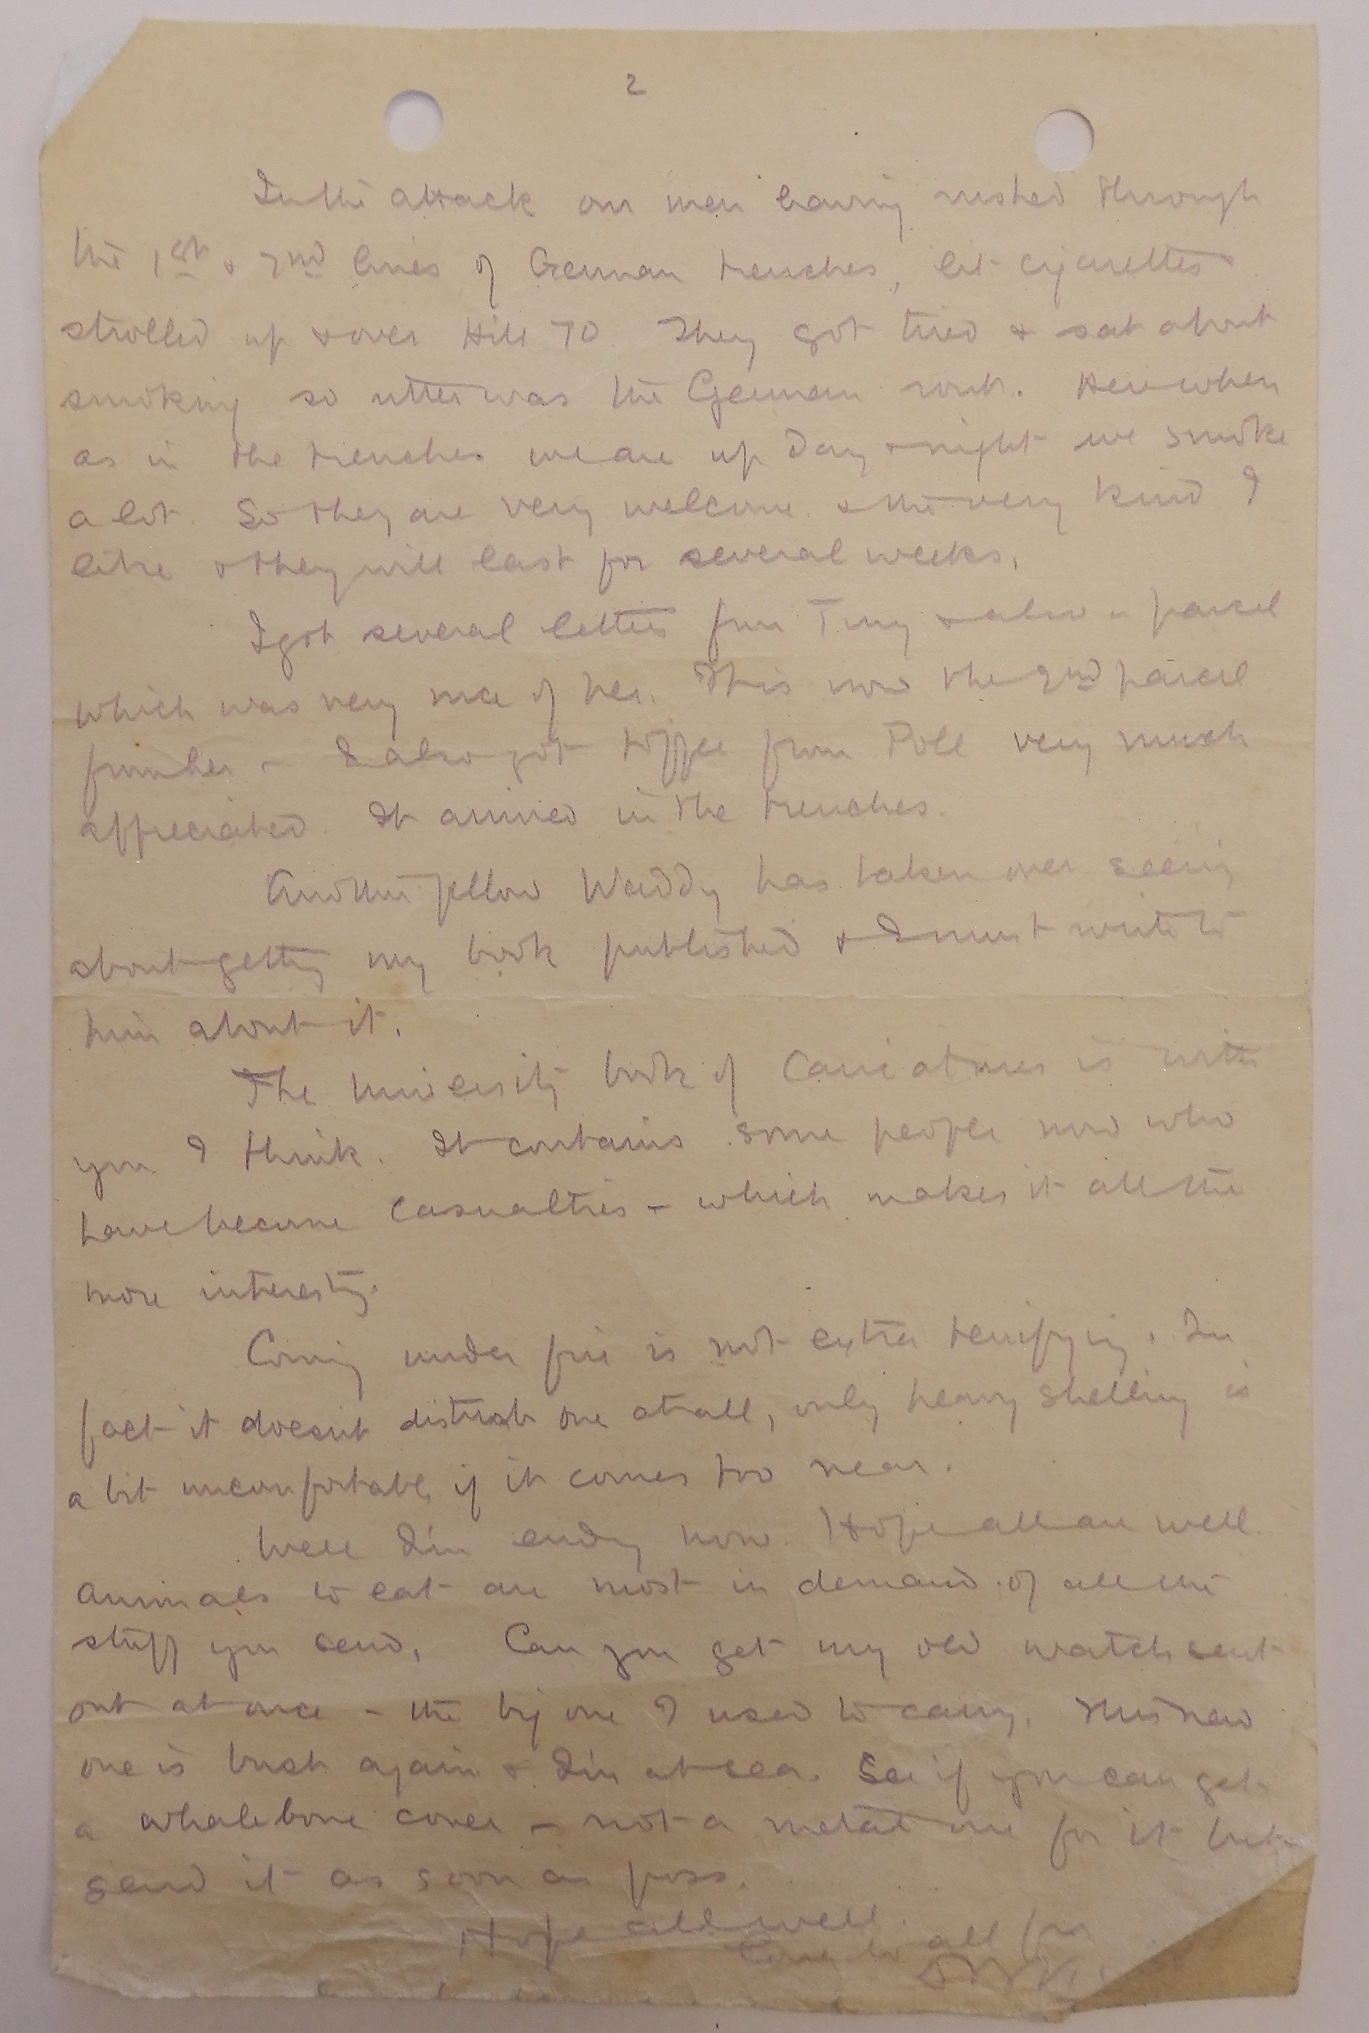 2
In the attack our men having rushed through
the 1st & 2nd lines of German trenches, lit cigarettes
strolled up & over Hill 70. They got tired & sat about
smoking so utter was the German rout. Here when
as in the trenches we are up day & night we smoke
a lot. So they are very welcome & the very kind I
like & they will last for several weeks.
I got several letters from Tiny & also a parcel
which was very nice of her. This now the 2nd parcel
from her - I also got toffee from Poll very much
appreciated. It arrived in the trenches.
Another fellow Waddy has taken over seeing
about getting my book published & I must write to
him about it.
The University book of Caricatures is with
you I think. It contains some people now who
have become casualties - which makes it all the
more interesting.
Coming under fire is not extra terrifying. In
fact it doesnt disturb one at all, only heavy shelling is
a bit uncomfortable if it comes too near.
Well I'm ending now. Hope all are well.
Animals to eat are most in demand of all the
stuff you send. Can you get my old watch sent
out at once - the big one I used to carry. This new
one is bust again & I'm at sea. See if you can get
a whalebone cover - not a metal one for it but
send it as soon as poss.
Hope all well.
Love to all from